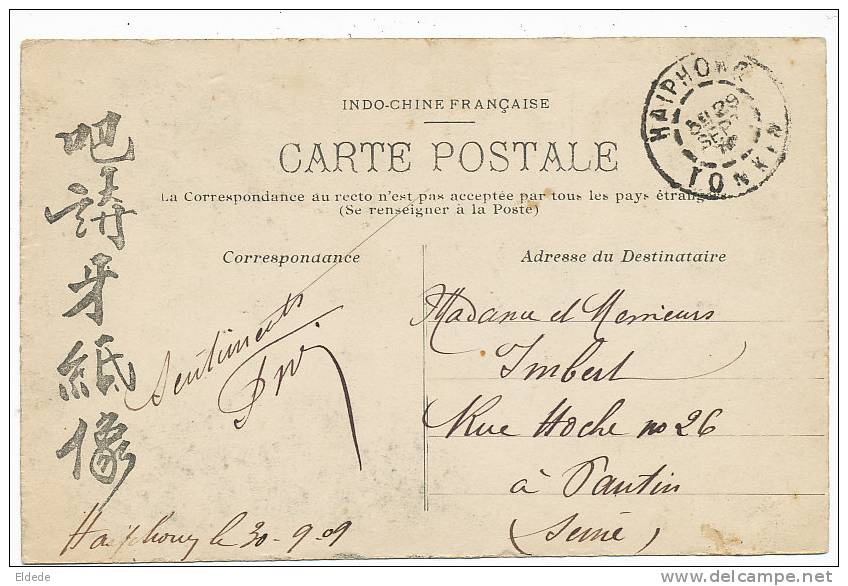 INDO-CHINE FRANÇAISE
CARTE POSTALE
La Correspondance au recto n'est pas acceptée par tous les pays étrangers
(Se renseigner à la Poste)
HAIPHONG
TONKIN
吧講牙紙像
Correspondance
Sentiments
Adresse du Destinataire
Madame et Messieurs
Imbert
Rue Hoche no 26
à Pantin
(Seine)
Haiphong le 30-9-09
Eldede
delcampe.net